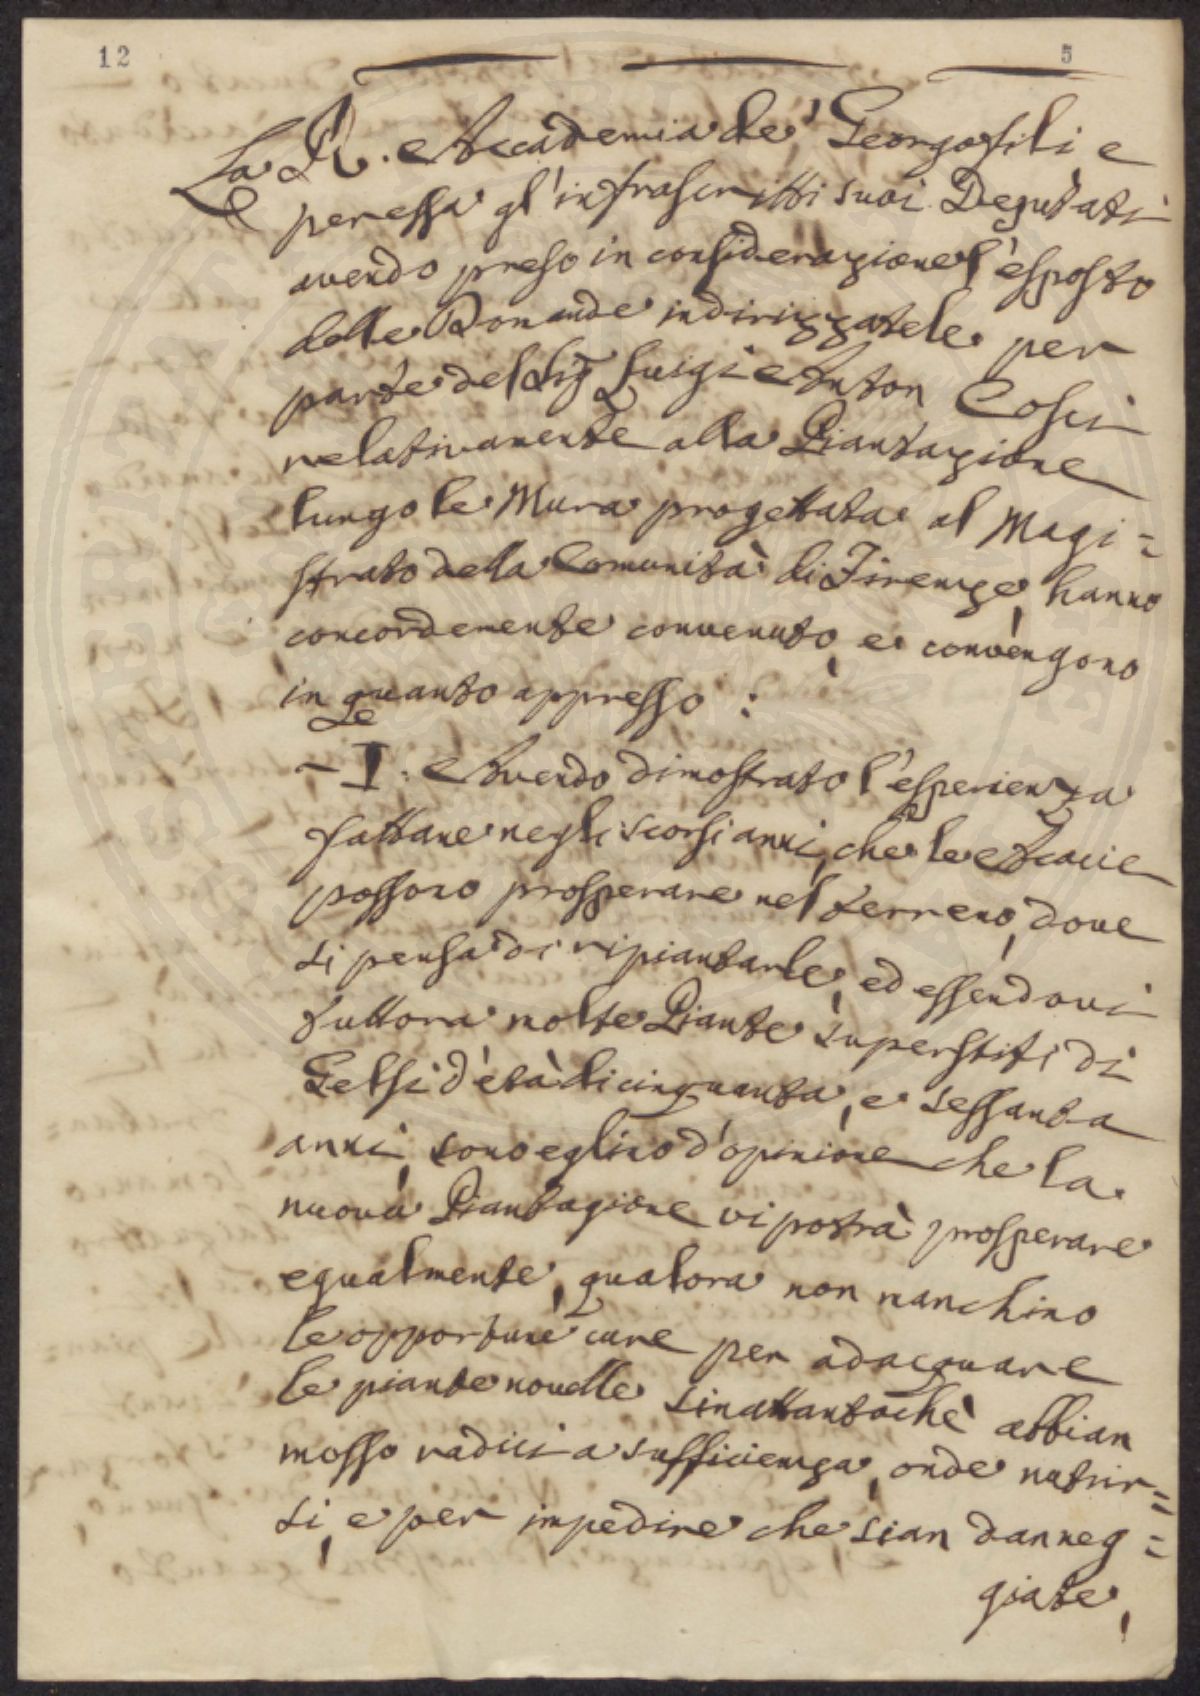 12
5
La R. Accademia de' Georgofili, e
per essa gl'infrascritti suoi Deputati
avendo preso in considerazione l'esposto
delle Domande indirizzatele per
parte del Sig.r Luigi Anton Cosci
relativamente alla Piantazione
lungo le Mura progettata al Magi=
strato della Comunità di Firenze, hanno
concordemente convenuto, e convengono
in quanto appresso:
I. Avendo dimostrato l'esperienza
fattane negli scorsi anni, che le Acacie
possono prosperare nel terreno, dove
si pensa di ripiantarle, ed essendovi
tuttora molte Piante superstiti di
Gelsi d'età di cinquanta, e sessanta
anni, sono eglino d'opinione che la
nuova Piantagione vi potrà prosperare
egualmente, qualora non manchino
le opportune cure per adacquare
le piante novelle sinattantochè abbian
mosso radici a sufficienza, onde nutrir=
si, e per impedire che sian danneg=
giate,